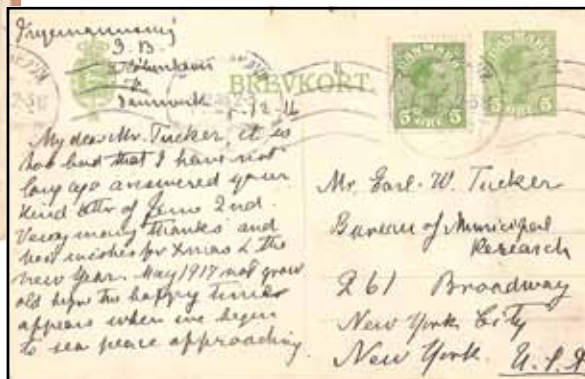 3. B.
København
Danmark
BREVKORT.
DANMARK
5 ØRE 5
5 ØRE 5
My dear Mr. Tucker, it is
too bad that I have not
long ago answered your
kind letter of June 2nd.
Very many thanks and
best wishes for Xmas & the
new Year. May 1917 not grow
old before the happy times
appears when we begin
to see peace approaching.
Mr. Earl. W. Tucker
Bureau of Municipal
Research
261 Broadway
New York City
New York. U.S.A